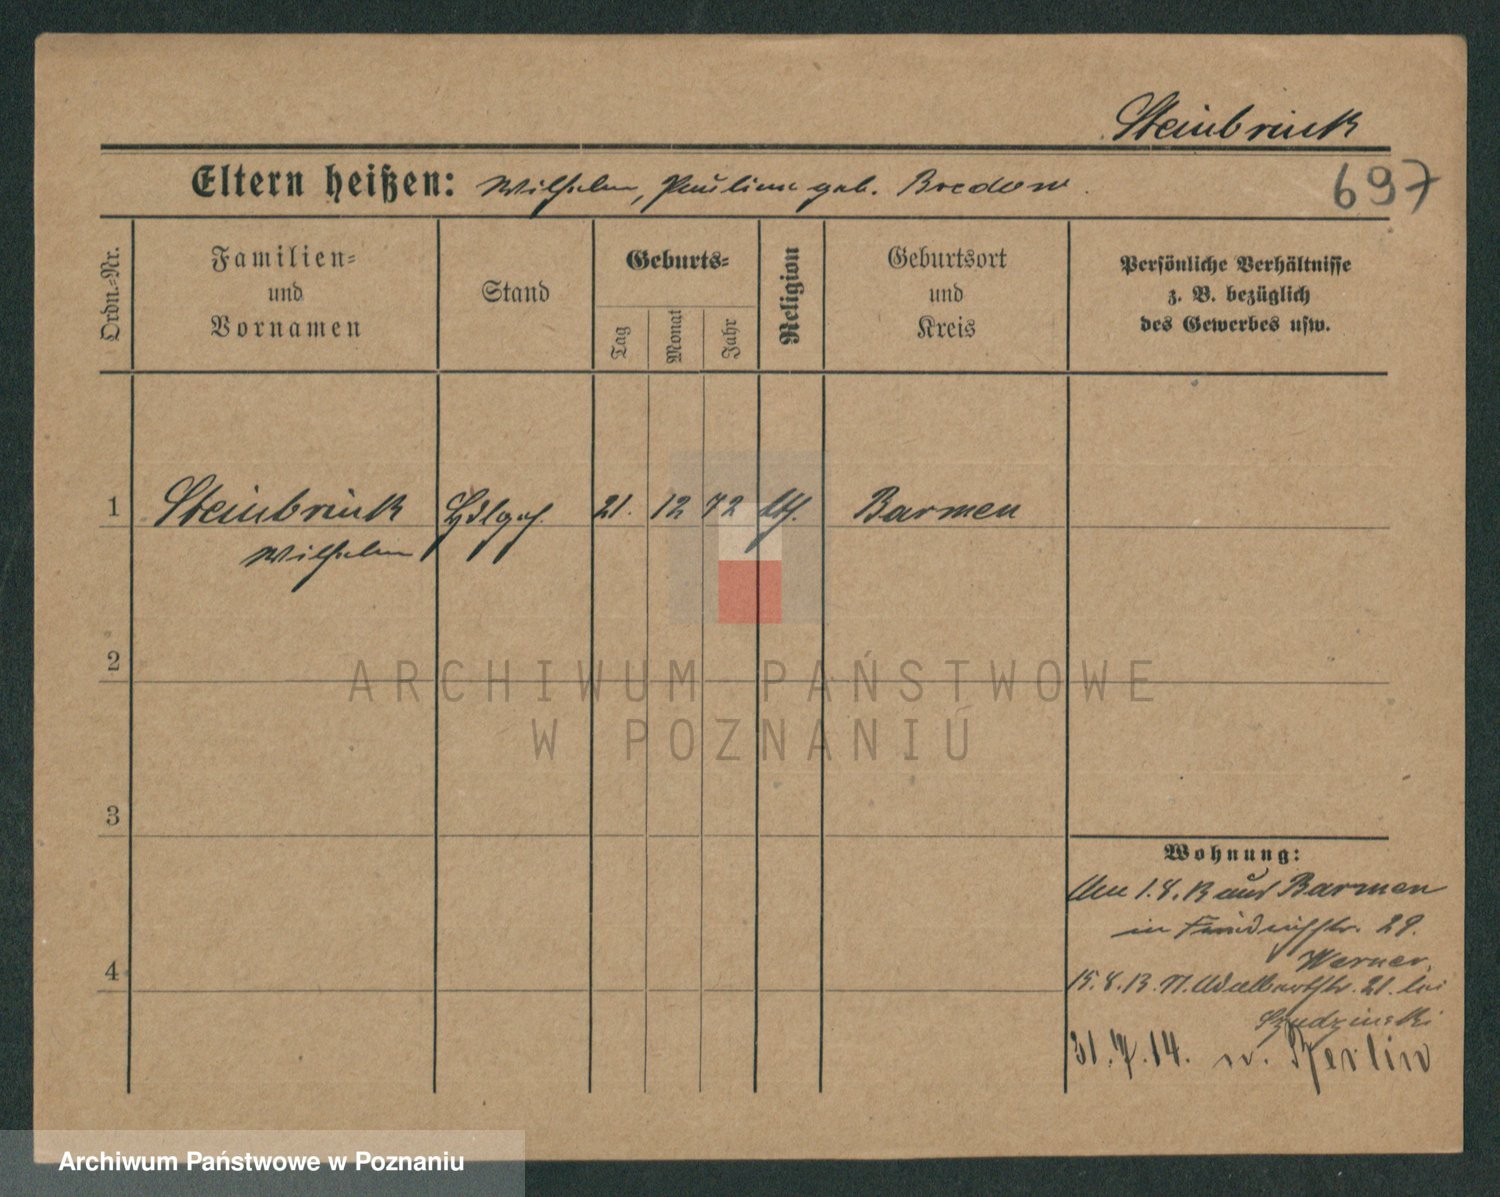 Steinbrink
Eltern heißen: Wilhelm, Pauline geb. Bredow.
697
Ordn.-Nr.
Familien-
und
Vornamen
Stand
Geburts-
Tag
Monat
Jahr
Religion
Geburtsort
und
Kreis
Persönliche Verhältnisse
z. B. bezüglich
des Gewerbes usw.
1 Steinbrink Hdlgeh. 21. 12 72 Barmen
Wilhelm
2
3
4
Wohnung:
Am 1.8.13 aus Barmen
in Friedrichstr. 29.
Werner.
15.8.13. Adalbertstr. 21. bei
Szudzinski
31.7.14. n. Berlin
ARCHIWUM PAŃSTWOWE
W POZNANIU
Archiwum Państwowe w Poznaniu